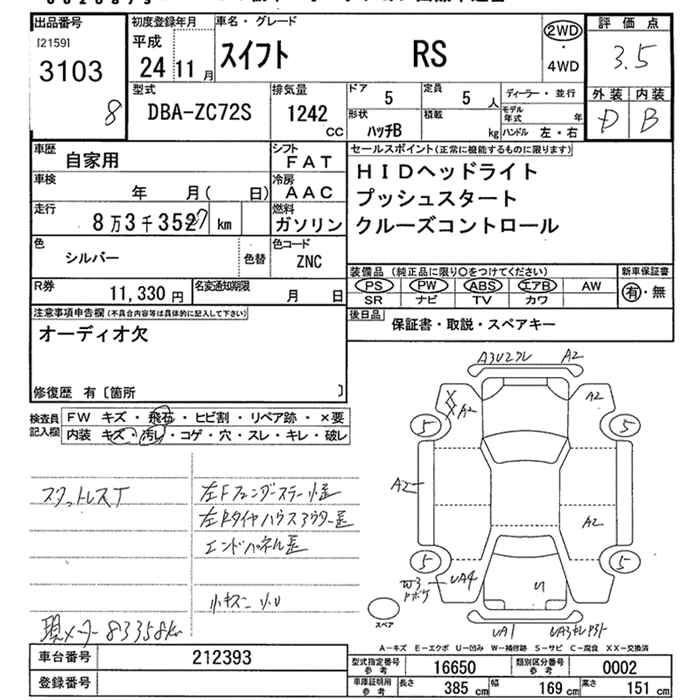 出品番号
[2159]
3103
8
初度登録年月
平成
24 11月
車名・グレード
スイフト RS
2WD
・
4WD
評価点
3.5
外装 内装
D B
型式
DBA-ZC72S
排気量
1242
CC
ドア
5
定員
5 人
ディーラー・並行
形状
ハッチB
積載
kg
モデル年式 年
ハンドル 左・右
車歴
自家用
シフト
FAT
車検
年 月( 日)
冷房
AAC
走行
8万3千352 7 km
燃料
ガソリン
色
シルバー
色替
色コード
ZNC
R券
11,330 円
名変通知期限
月 日
セールスポイント(正常に機能するものに限ります)
HIDヘッドライト
プッシュスタート
クルーズコントロール
装備品 (純正品に限り○をつけてください)
PS PW ABS エアB AW
SR ナビ TV カワ
新車保証書
有・無
後日品
保証書・取説・スペアキー
注意事項申告欄(不具合内容等は具体的に記入して下さい)
オーディオ欠
修復歴 有〔箇所 〕
検査員
記入欄
FW キズ・飛石・ヒビ割・リペア跡・×要
内装 キズ・汚レ・コゲ・穴・スレ・キレ・破レ
スタットレスT
左Fフェンダーステー小歪
左Rタイヤハウスアウター歪
エンドパネル歪
小キズ 小U
現メーター83358km
A3U2フレ A2
XX A2
A2
5 5
A2
A2
5 5
W3
UA4
U1
UA1
スペア
A-キズ E-エクボ U-凹み W-補修跡 S-サビ C-腐食 XX-交換済
車台番号
212393
登録番号
型式指定番号
参考
16650
類別区分番号
参考
0002
車庫証明用
参考
長さ 385 cm
幅 169 cm
高さ 151 cm